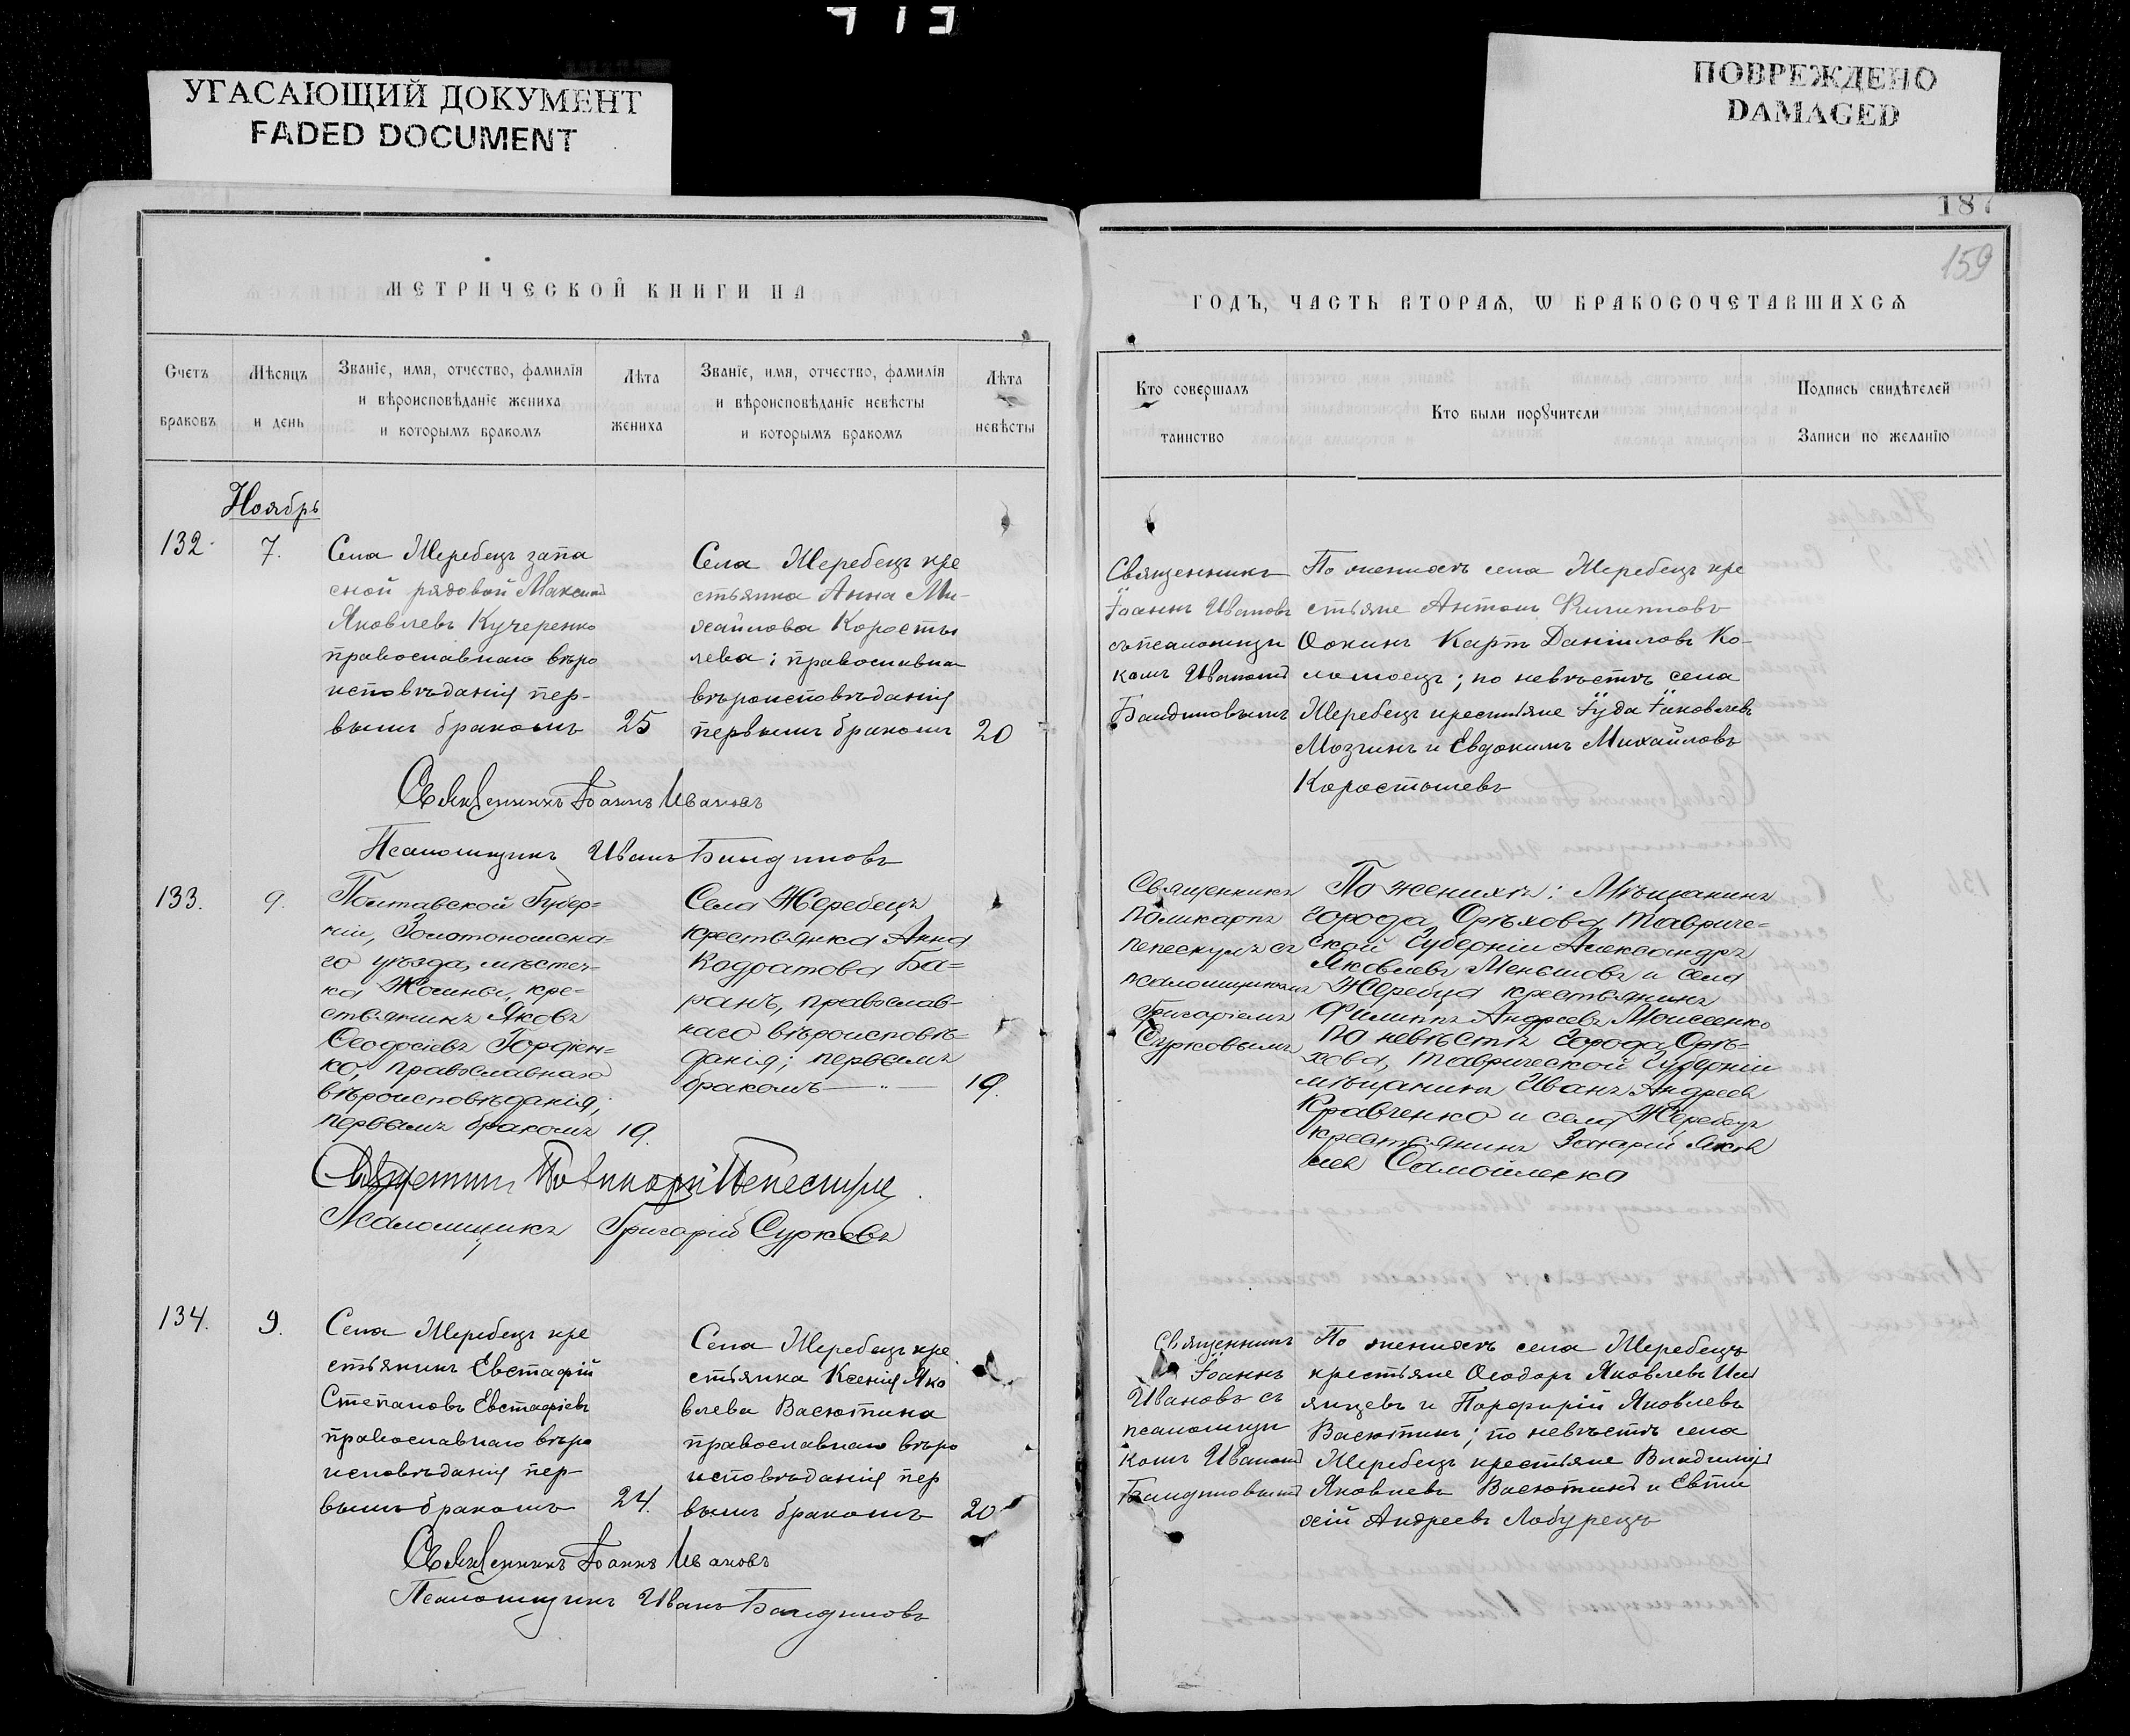 УГАСАЮЩИЙ ДОКУМЕНТ
FADED DOCUMENT
ПОВРЕЖДЕНО
DAMAGED
187
159
МЕТРИЧЕСКОЙ КНИГИ НА
Счетъ браковъ
Мѣсяцъ и день
Званіе, имя, отчество, фамилія
и вѣроисповѣданіе жениха
и которымъ бракомъ
Лѣта жениха
Званіе, имя, отчество, фамилія
и вѣроисповѣданіе невѣсты
и которымъ бракомъ
Лѣта невѣсты
Ноябрь
132.
7.
Села Жеребецъ запа
сной рядовой Максимъ
Яковлевъ Кучеренко
православнаго вѣро
исповѣданія пер-
вымъ бракомъ
25
Села Жеребецъ кре
стьянка Анна Ми-
хайлова Коросты
лева; православна
вѣроисповѣданія
первымъ бракомъ
20
Священникъ Іоаннъ Ивановъ
Псаломщикъ Иванъ
133.
9.
Полтавской Губер=
ніи, Золотоношска=
го уѣзда, мѣстеч-
ка кре-
стьянинъ Яковъ
Ѳеодосіевъ Гордіен=
ко, православнаго
вѣроисповѣданія;
первымъ бракомъ
19.
Села Жеребецъ
крестьянка Анна
Кодратова Ба=
ранъ, православ-
наго вѣроисповѣ-
данія; первымъ
бракомъ
19.
Священникъ Поликарпъ
Псаломщикъ Григорій Сурковъ
134.
9.
Села Жеребецъ кре
стьянинъ Евстафій
Степановъ Евстафіевъ
православнаго вѣро
исповѣданія пер-
вымъ бракомъ
24.
Села Жеребецъ кре
стьянка Ксенія Яко
влева Васютина
православнаго вѣро
исповѣданія пер
вымъ бракомъ
20
Священникъ Іоаннъ Ивановъ
Псаломщикъ Иванъ
ГОДЪ, ЧАСТЬ ВТОРАѦ, Ѡ БРАКОСОЧЕТАВШИХСѦ
Кто совершалъ
таинство
Кто были порꙋчители
Подпись свидѣтелей
Записи по желанію
Священникъ
Іоаннъ Ивановъ
съ псаломщи
комъ Иваномъ
По женихѣ села Жеребецъ кре
стьяне Антонъ Филипповъ
Карпъ Даніиловъ Ко-
ломоецъ; по невѣстѣ села
Жеребецъ крестьяне Іуда Іаковлевъ
Мозгинъ и Евдокимъ Михайловъ
Коростылевъ
Священникъ
Поликарпъ
Пепескулъ съ
псаломщикомъ
Григоріемъ
Сурковымъ
По женихѣ: Мѣщанинъ
города Орѣхова Тавриче=
ской Губерніи Александръ
Яковлевъ Меньшовъ и села
Жеребца крестьянинъ
Филиппъ Андреевъ Моисеенко
по невѣстѣ города Орѣ=
хова, Таврической Губерніи
мѣщанинъ Иванъ Андреевъ
Кравченко и села Жеребецъ
крестьянинъ Захарій Яков
левъ Самойленко
Священникъ
Іоаннъ
Ивановъ съ
псаломщи
комъ Иваномъ
По женихѣ села Жеребецъ
крестьяне Ѳеодоръ Яковлевъ
и Порфирій Яковлевъ
Васютинъ; по невѣстѣ села
Жеребецъ крестьяне Владиміръ
Яковлевъ Васютинъ и Евти
хій Андреевъ Лобурецъ